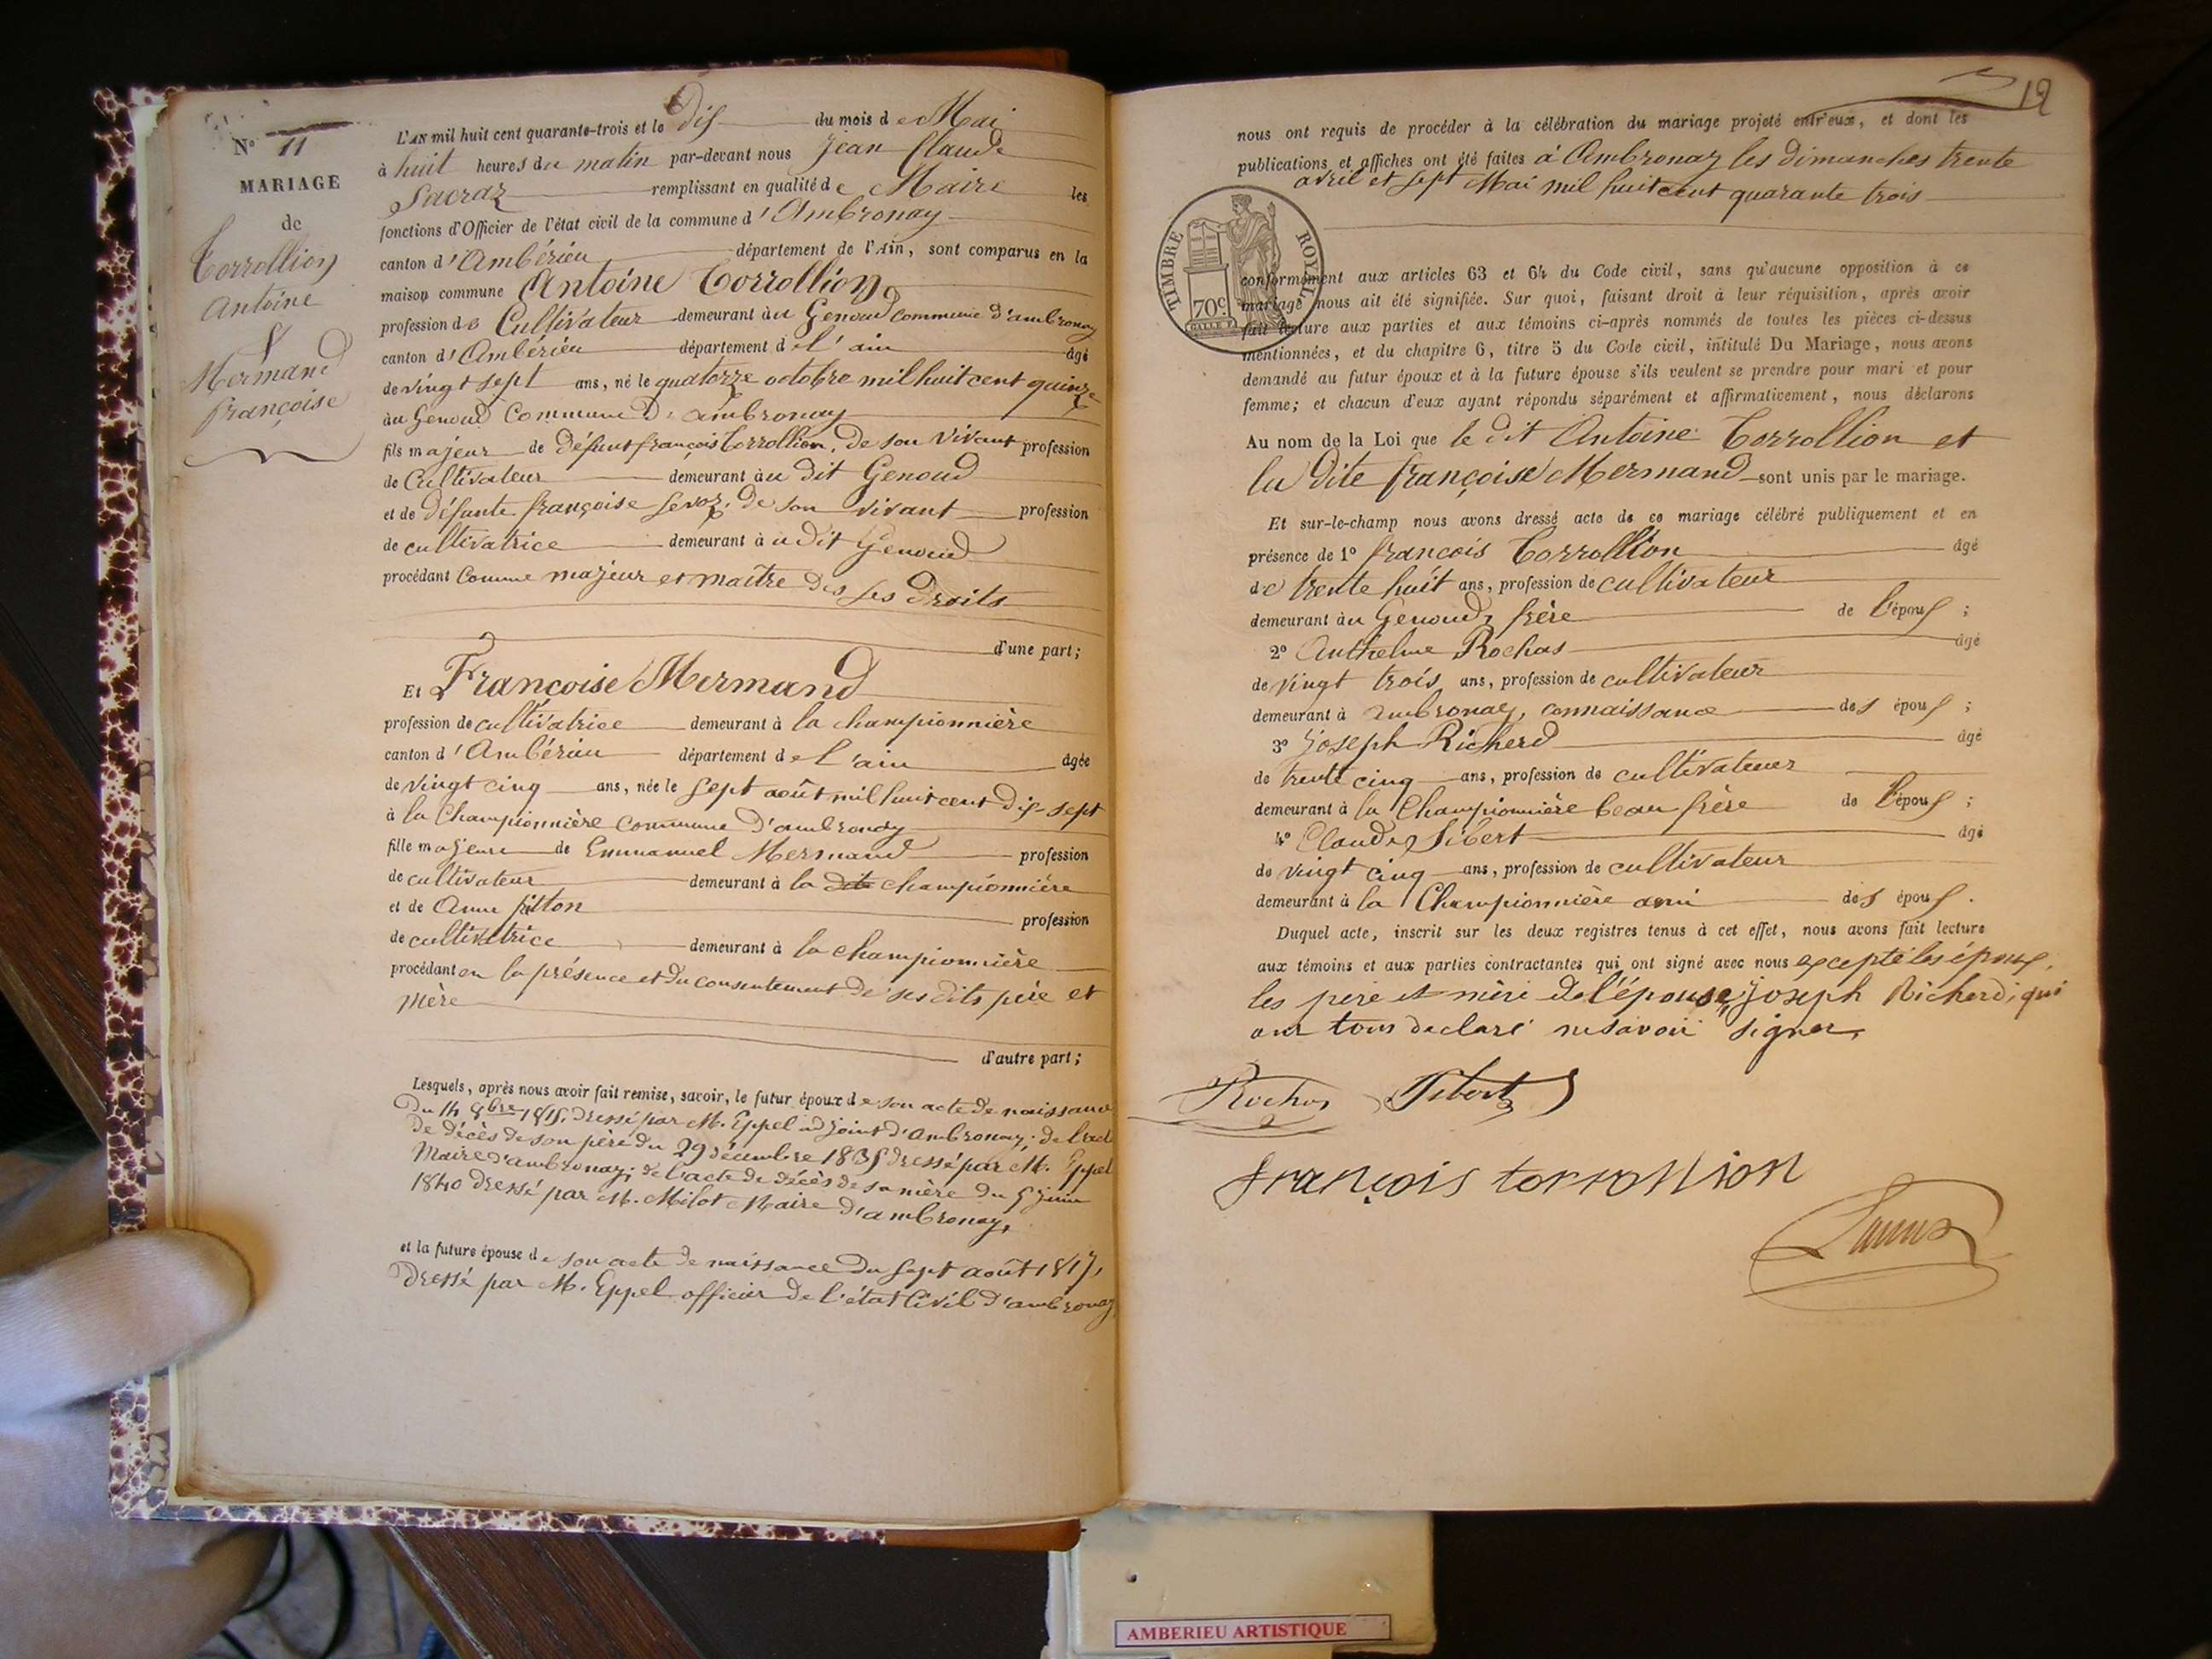 N° 11
MARIAGE
de
Torrollion
Antoine
&
Mermand
françoise
L'AN mil huit cent quarante-trois et le dix du mois de Mai
à huit heures du matin par-devant nous Jean Claude
remplissant en qualité de Maire les
fonctions d'Officier de l'état civil de la commune d'Ambronay
canton d'Ambérieu département de l'Ain, sont comparus en la
maison commune Antoine Torrollion,
profession de Cultivateur demeurant au Genoud commune d'ambronay
canton d'Ambérieu département de l'ain âgé
de vingt sept ans, né le quatorze octobre mil huit cent quinze
au Genoud Commune D'ambronay
fils majeur de défunt françois Torrollion, de son vivant profession
de Cultivateur demeurant au dit Genoud
et de défunte françoise de son vivant profession
de cultivatrice demeurant au dit Genoud
procédant comme majeur et maître des ses droits
d'une part;
Et Françoise Mermand
profession de cultivatrice demeurant à la championnière
canton d'Ambérieu département de l'ain âgée
de vingt cinq ans, née le sept août mil huit cent dix-sept
à la Championnière commune d'ambronay
fille majeure de Emmanuel Mermand profession
de cultivateur demeurant à la dite championnière
et de Anne fitton profession
de cultivatrice demeurant à la championnière
procédant en la présence et du consentement de ses dits père et
mère
d'autre part;
Lesquels, après nous avoir fait remise, savoir, le futur époux de son acte de naissance
du 14 8bre 1815, dressé par M. Eppel adjoint d'ambronay; de l'acte
de décès de son père du 29 décembre dressé par M. Eppel
Maire d'ambronay; de l'acte de décès de sa mère du 5 juin
1840 dressé par M. Milot Maire d'ambronay,
et la future épouse de son acte de naissance du sept août 1817,
dressé par M. Eppel officier de l'état civil d'ambronay
12
nous ont requis de procéder à la célébration du mariage projeté entr'eux, et dont les
publications et affiches ont été faites à Ambronay les dimanches trente
avril et sept Mai mil huit cent quarante trois
TIMBRE ROYAL
70c
conformément aux articles 63 et 64 du Code civil, sans qu'aucune opposition à ce
mariage nous ait été signifiée. Sur quoi, faisant droit à leur réquisition, après avoir
fait lecture aux parties et aux témoins ci-après nommés de toutes les pièces ci-dessus
mentionnées, et du chapitre 6, titre 5 du Code civil, intitulé Du Mariage, nous avons
demandé au futur époux et à la future épouse s'ils veulent se prendre pour mari et pour
femme; et chacun d'eux ayant répondu séparément et affirmativement, nous déclarons
Au nom de la Loi que le dit Antoine Torrollion et
la dite françoise Mermand sont unis par le mariage.
Et sur-le-champ nous avons dressé acte de ce mariage célébré publiquement et en
présence de 1° françois Torrollion âgé
de trente huit ans, profession de cultivateur
demeurant au Genoud, frère de l'époux;
2° Anthelme Rochas âgé
de vingt trois ans, profession de cultivateur
demeurant à ambronay, connaissance des époux;
3° Joseph Richerd âgé
de trente cinq ans, profession de cultivateur
demeurant à la Championnière beau frère de l'époux;
4° Claude Sibert âgé
de vingt cinq ans, profession de cultivateur
demeurant à la Championnière ami des époux.
Duquel acte, inscrit sur les deux registres tenus à cet effet, nous avons fait lecture
aux témoins et aux parties contractantes qui ont signé avec nous excepté les époux,
les père et mère de l'épouse, Joseph Richerd, qui
ont tous déclaré ne savoir signer.
Rochas Sibert
françois torrollion
AMBERIEU ARTISTIQUE